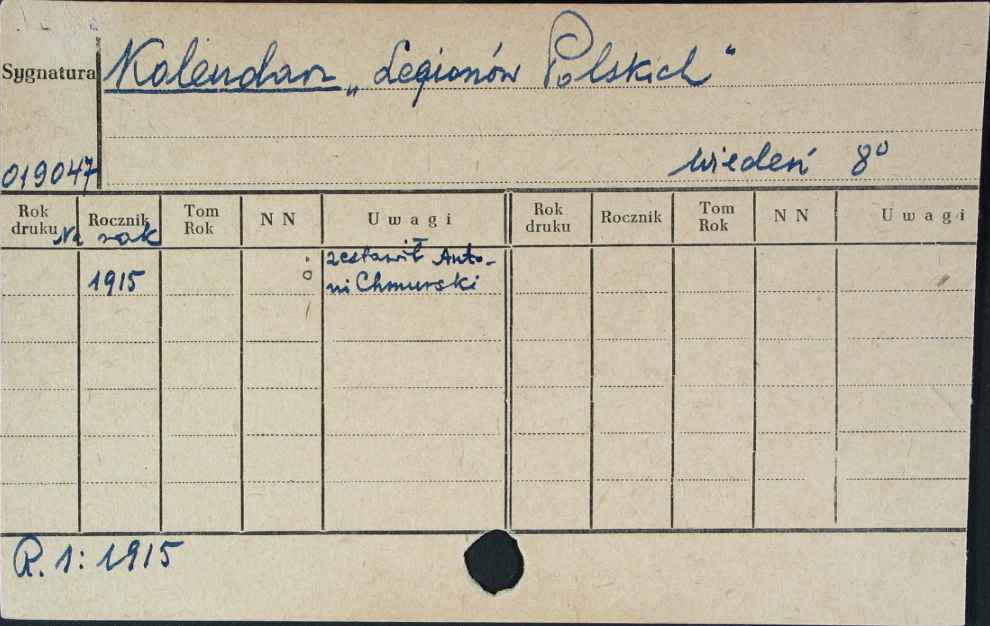 Sygnatura
Kalendarz „Legionów Polskich“
019047
Wiedeń 8°
Rok druku Rocznik Tom Rok N N Uwagi Rok druku Rocznik Tom Rok N N Uwagi
Na rok
1915 zestawił Anto-
ni Chmurski
R. 1: 1915